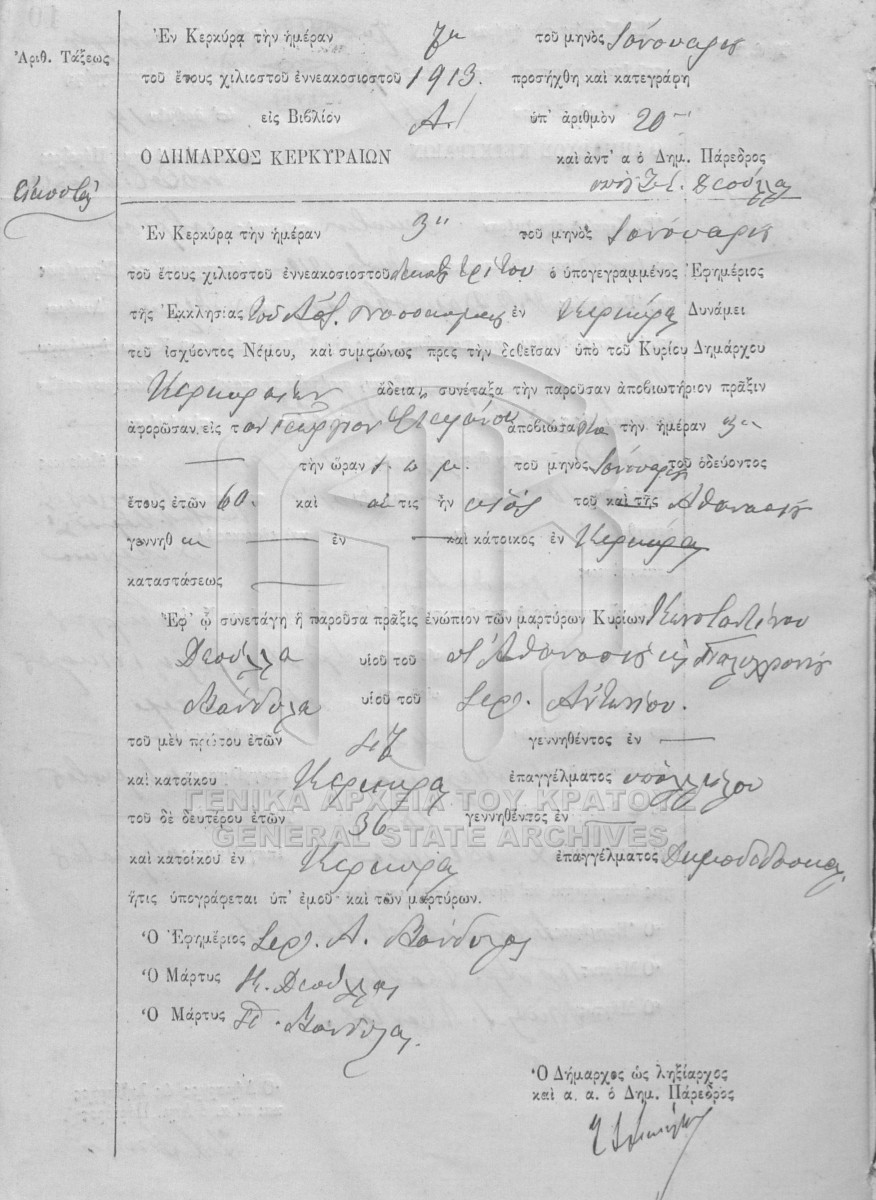 Ἐν Κερκύρᾳ τὴν ἡμέραν 7ην τοῦ μηνὸς Ἰανουαρίου
Ἀριθ. Τάξεως
τοῦ ἔτους χιλιοστοῦ ἐννεακοσιοστοῦ 1913. προσήχθη καὶ κατεγράφη
εἰς Βιβλίον Α. ὑπ' ἀριθμὸν 20
Ο ΔΗΜΑΡΧΟΣ ΚΕΡΚΥΡΑΙΩΝ καὶ ἀντ' α ὁ Δημ. Πάρεδρος
Εἰκοστὴ
Ἐν Κερκύρᾳ τὴν ἡμέραν 3ην τοῦ μηνὸς Ἰανουαρίου
τοῦ ἔτους χιλιοστοῦ ἐννεακοσιοστοῦ δεκάτου τρίτου ὁ ὑπογεγραμμένος Ἐφημέριος
τῆς Ἐκκλησίας τοῦ ἐν Κερκύρᾳ Δυνάμει
τοῦ ἰσχύοντος Νόμου, καὶ συμφώνως πρὸς τὴν δοθεῖσαν ὑπὸ τοῦ Κυρίου Δημάρχου
Κερκυραίων ἄδειαν, συνέταξα τὴν παροῦσαν ἀποβιωτήριον πρᾶξιν
ἀφορῶσαν εἰς τὸν Γεώργιον ἀποβιώσαντα τὴν ἡμέραν 3ην
τὴν ὥραν 1. π μ. τοῦ μηνὸς Ἰανουαρίου τοῦ ὁδεύοντος
ἔτους ἐτῶν 60. καὶ ὅστις ἦν υἱὸς τοῦ καὶ τῆς Ἀθανασίου
γεννηθ ἐν καὶ κάτοικος ἐν Κερκύρᾳ
καταστάσεως
Ἐφ' ᾧ συνετάγη ἡ παροῦσα πρᾶξις ἐνώπιον τῶν μαρτύρων Κυρίων Κωνσταντίνου
Δεσύλλα υἱοῦ τοῦ Ἀθανασίου καὶ Πολυχρονίου
Βανδύλα υἱοῦ τοῦ Ἱερ. Ἀντωνίου.
τοῦ μὲν πρώτου ἐτῶν γεννηθέντος ἐν
καὶ κατοίκου Κερκύρᾳ ἐπαγγέλματος ὑπαλλήλου
ΓΕΝΙΚΑ ΑΡΧΕΙΑ ΤΟΥ ΚΡΑΤΟΥΣ
τοῦ δὲ δευτέρου ἐτῶν 36 γεννηθέντος ἐν
GENERAL STATE ARCHIVES
καὶ κατοίκου ἐν Κερκύρᾳ ἐπαγγέλματος Δημοδιδάσκαλ.
ἥτις ὑπογράφεται ὑπ' ἐμοῦ καὶ τῶν μαρτύρων.
Ὁ Ἐφημέριος Ἱερ. Α. Βανδύλας
Ὁ Μάρτυς Κ. Δεσύλλας
Ὁ Μάρτυς Π. Βανδύλας.
Ὁ Δήμαρχος ὡς ληξίαρχος
καὶ α. α. ὁ Δημ. Πάρεδρος